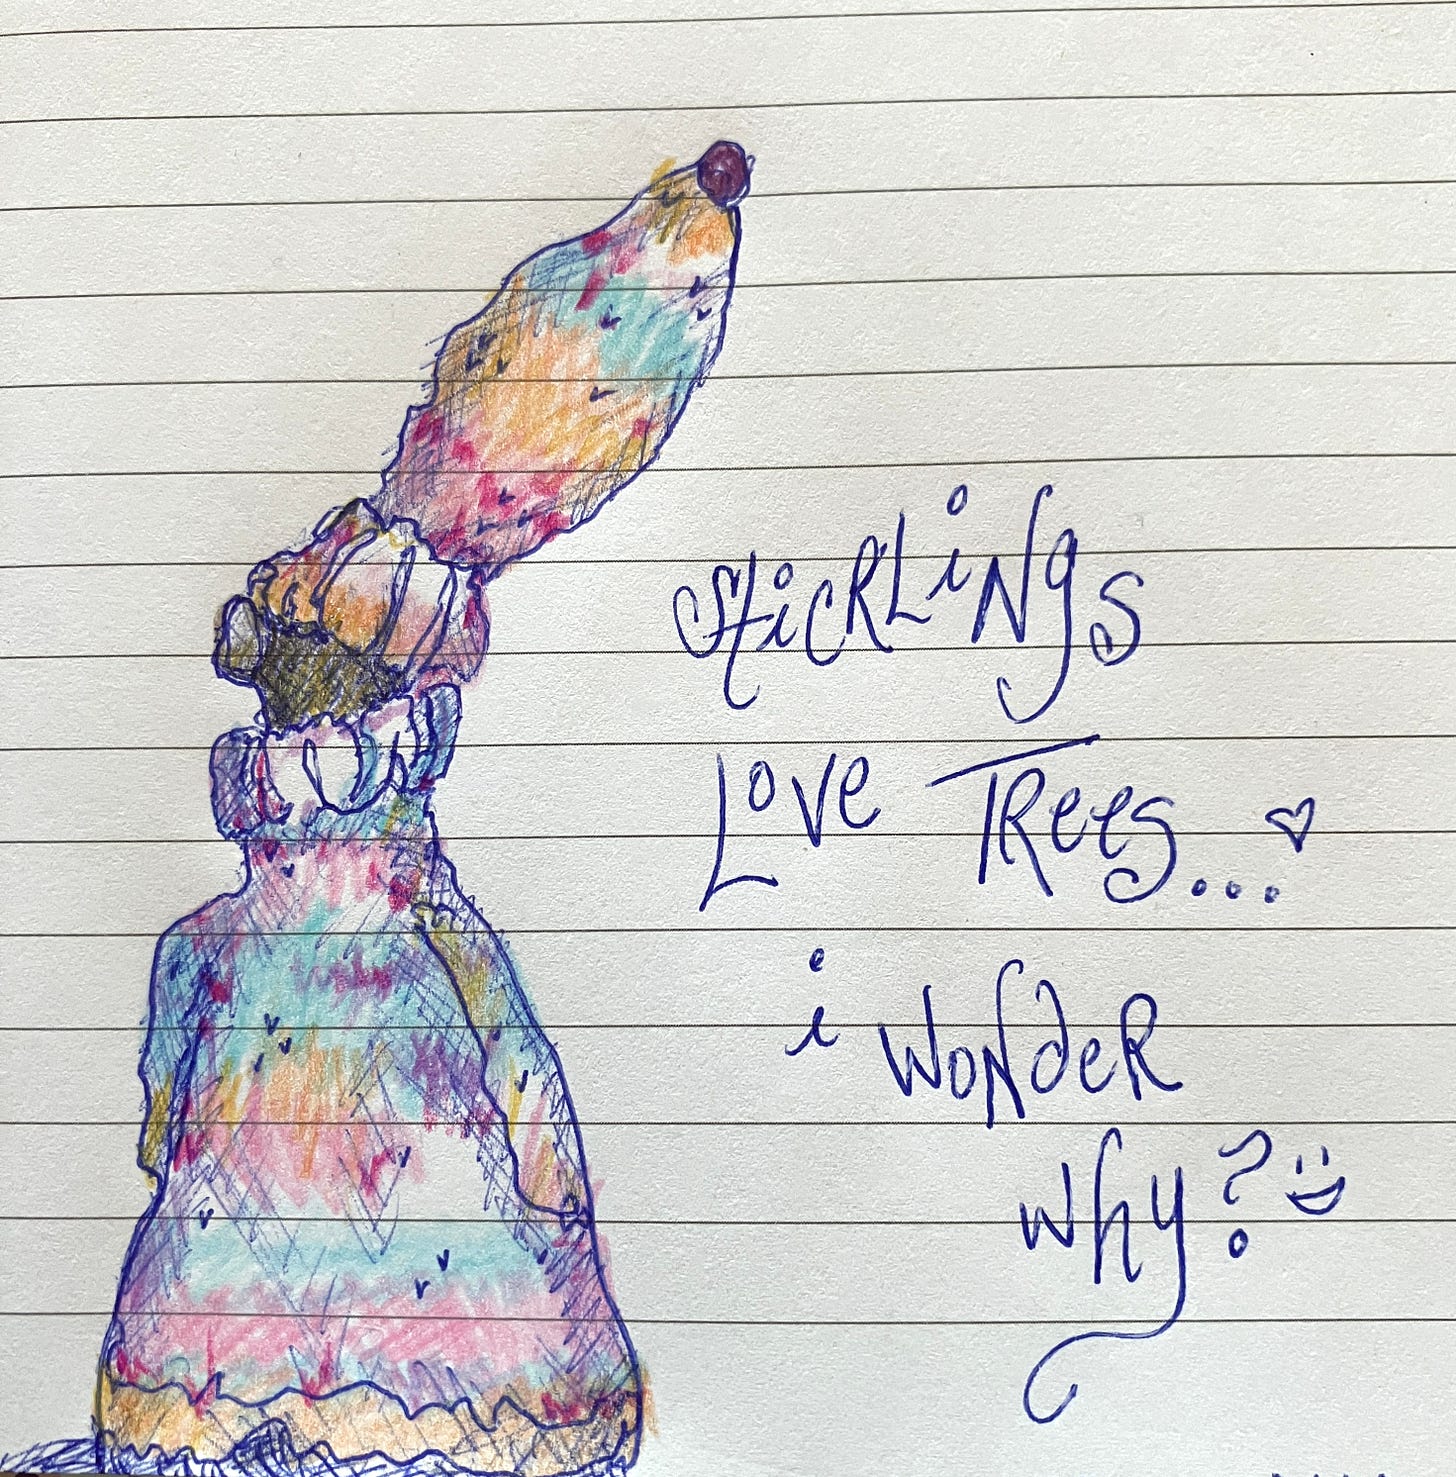 SticKLiNgS
LOVe TRees...♡
i WoNdeR
Why? :)